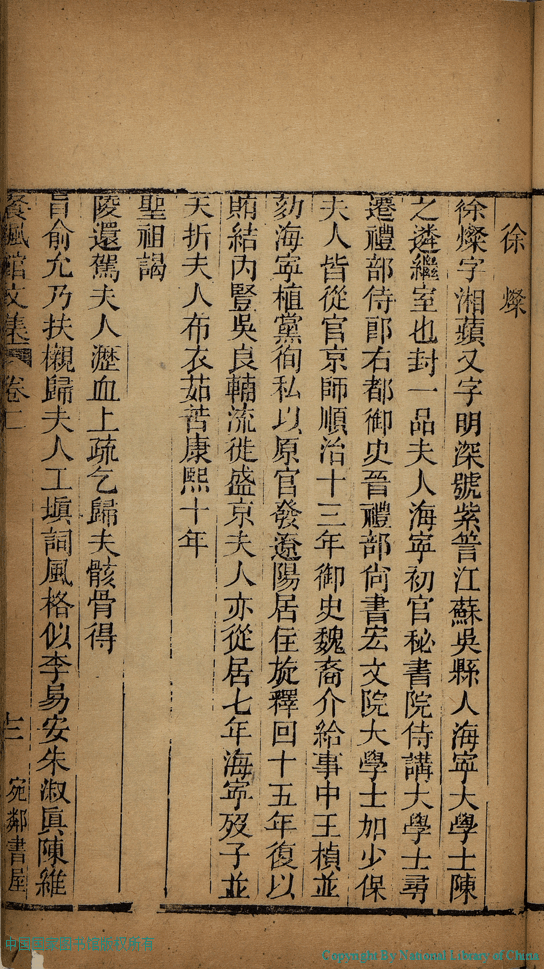 徐燦
徐燦字湘蘋又字明深號紫䇾江蘇吳縣人海寧大學士陳
之遴繼室也封一品夫人海寧初官秘書院侍講大學士尋
遷禮部侍郎右都御史晉禮部尙書宏文院大學士加少保
夫人皆從官京師順治十三年御史魏裔介給事中王楨並
劾海寧植黨徇私以原官發遼陽居住旋釋回十五年復以
賄結內豎吳良輔流徙盛京夫人亦從居七年海寧歿子並
夭折夫人布衣茹苦康熙十年
聖祖謁
陵還駕夫人瀝血上疏乞歸夫骸骨得
旨俞允乃扶櫬歸夫人工塡詞風格似李易安朱淑眞陳維
餐楓館文集 卷二 十二 宛鄰書屋
中国国家图书馆版权所有
Copyright By National Library of China